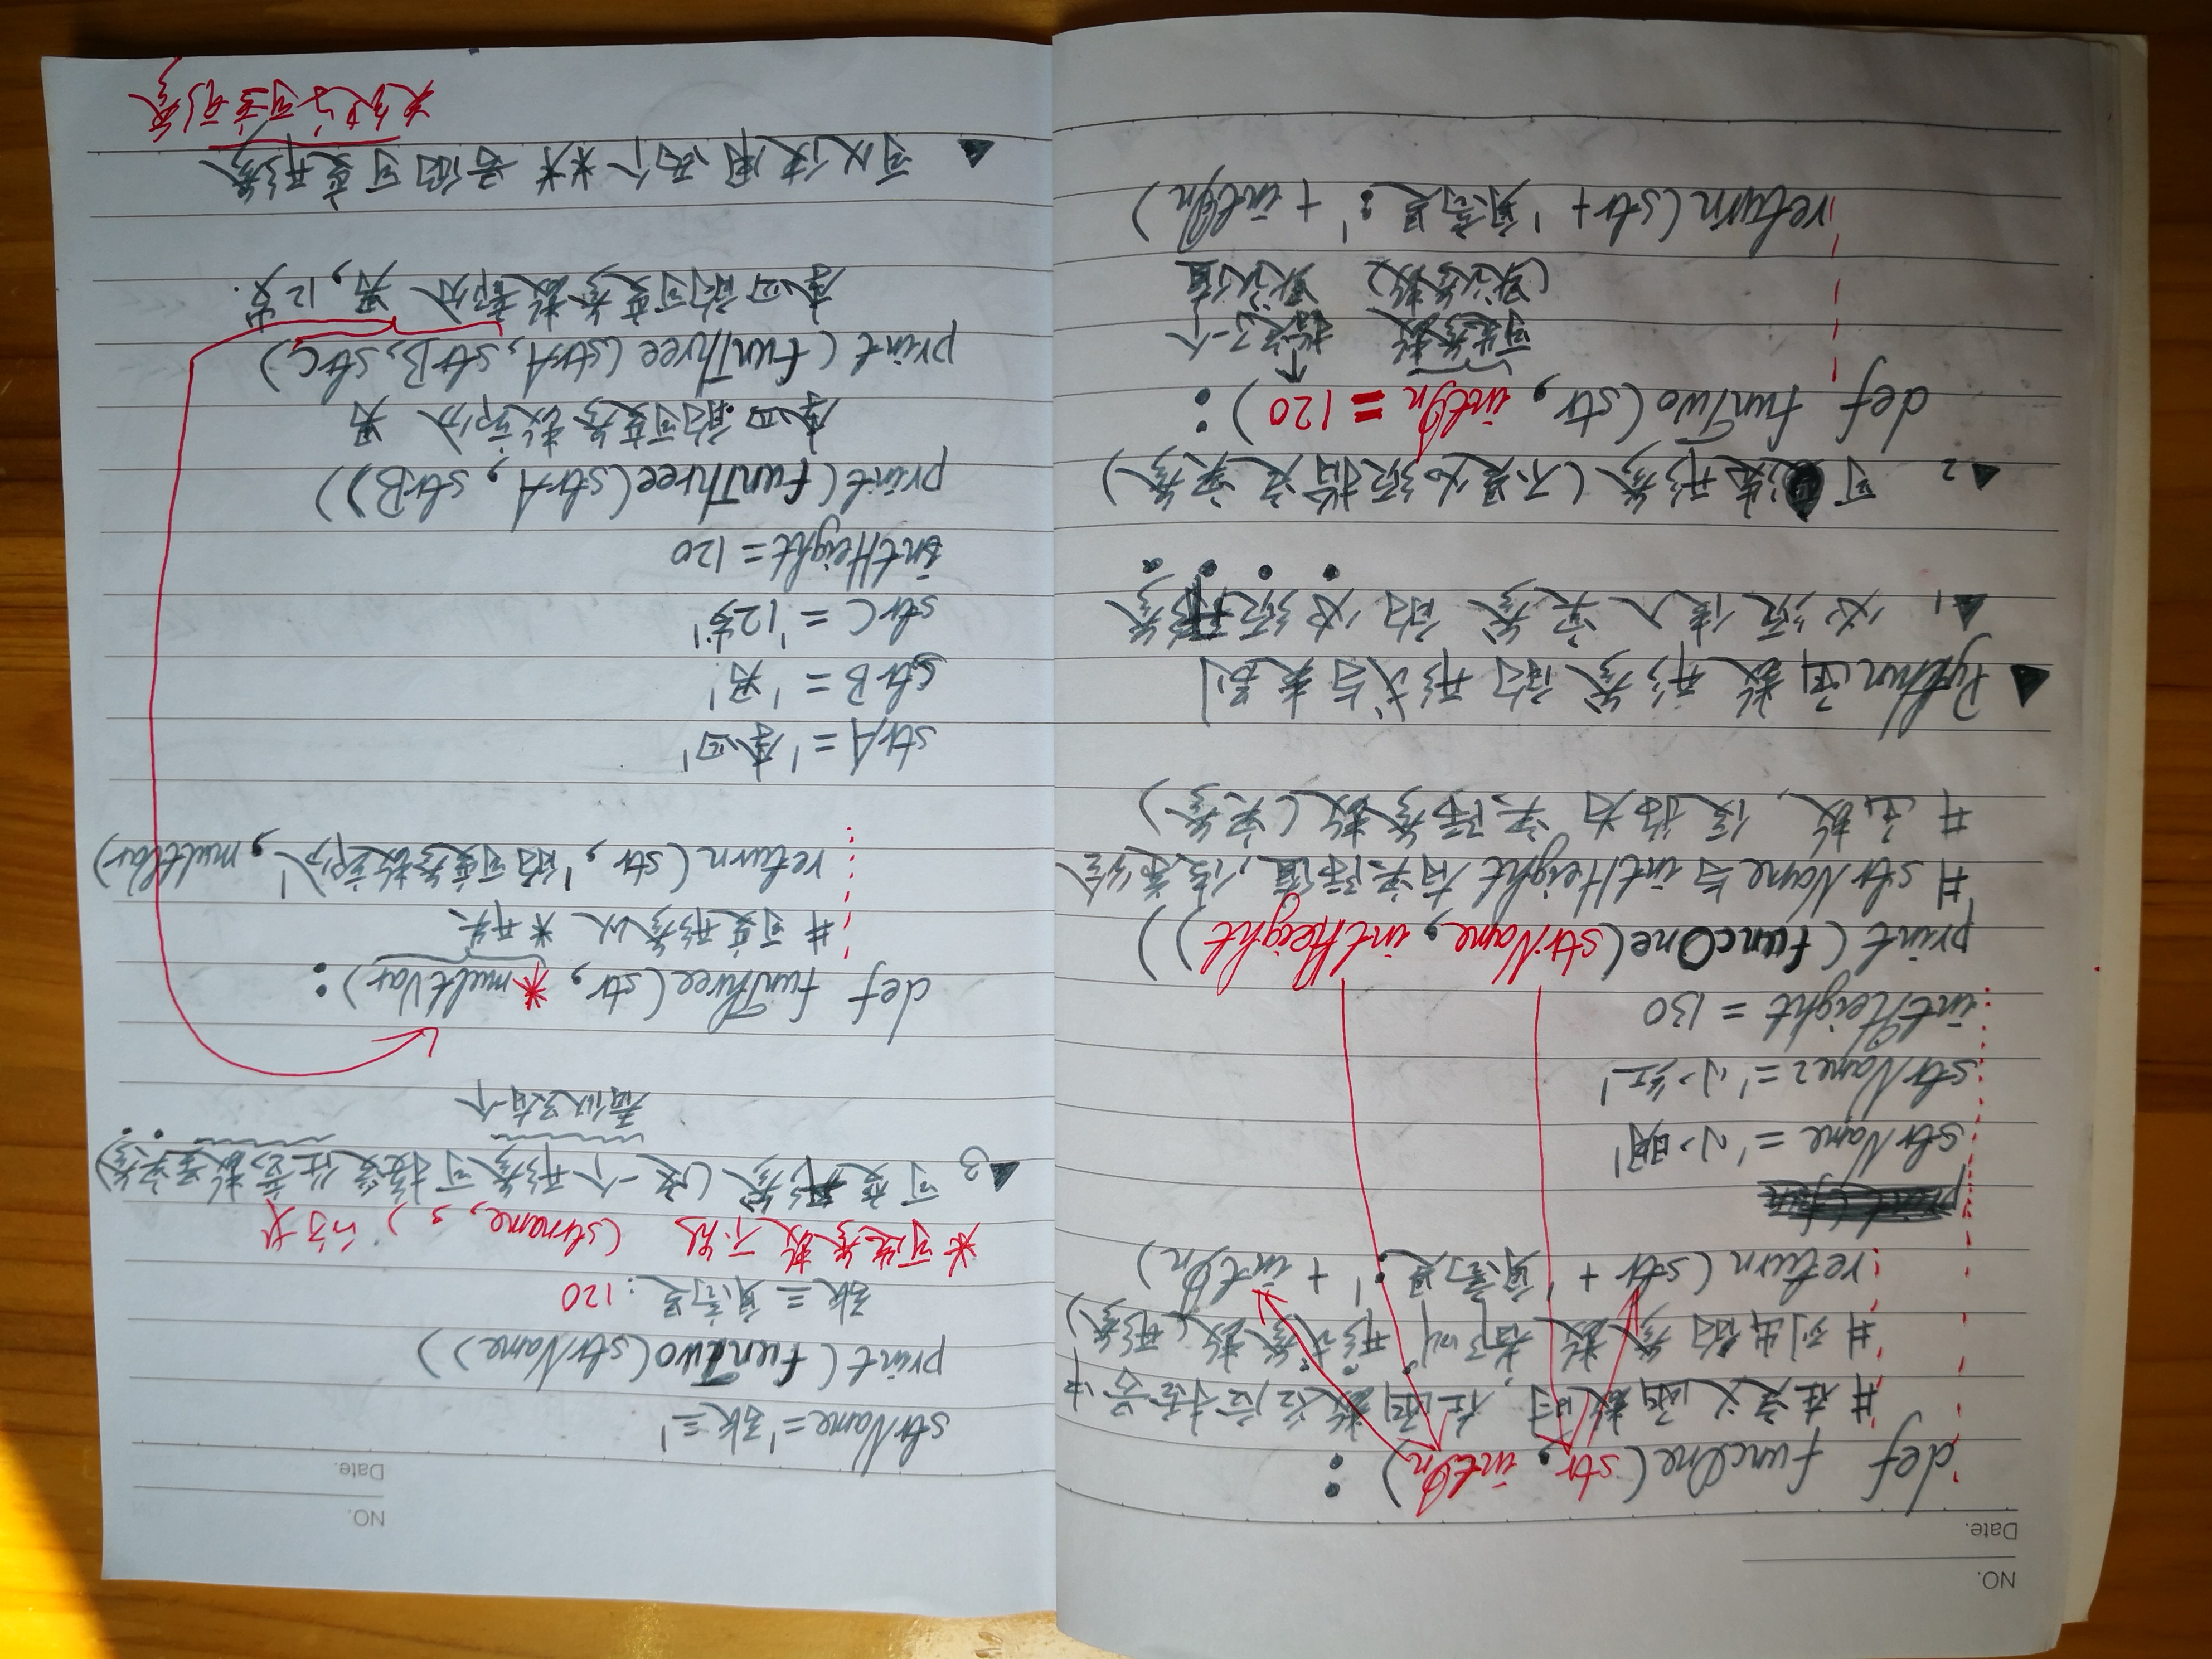 NO.
Date.
def funcOne(str, intIn):
#在定义函数时,在函数后括号中
#列出的参数都叫形式参数(形参)
return(str+'身高是:'+intIn)
strName='小明'
strName2='小红'
intHeight=130
print(funcOne(strName, intHeight))
#strName与intHeight有实际值,传给
#函数,被称为实际参数(实参)
▲Python函数形参的形式与类别
▲1 必须传入实参的必须形参
▲2 可选形参(不是必须指定实参)
def funTwo(str, intIn=120):
可选参数 指定了一个
(默认参数) 默认值
return(str+'身高是:'+intIn)
NO.
Date.
strName='张三'
print(funTwo(strName))
张三身高是:120
*可选参数不能(strname, )的方式
▲3 可变形参(定一个形参可接受任意数量实参)
看似只有一个
def funThree(str, *multVar):
#可变形参以*开头
return(str,'的可变参数部分', multVar)
strA='李四'
strB='男'
strC='12岁'
intHeight=120
print(funThree(strA, strB))
李四的可变参数部分 男
print(funThree(strA, strB, strC))
李四的可变参数部分 男,12岁.
▲可以使用两个**号的可变形参